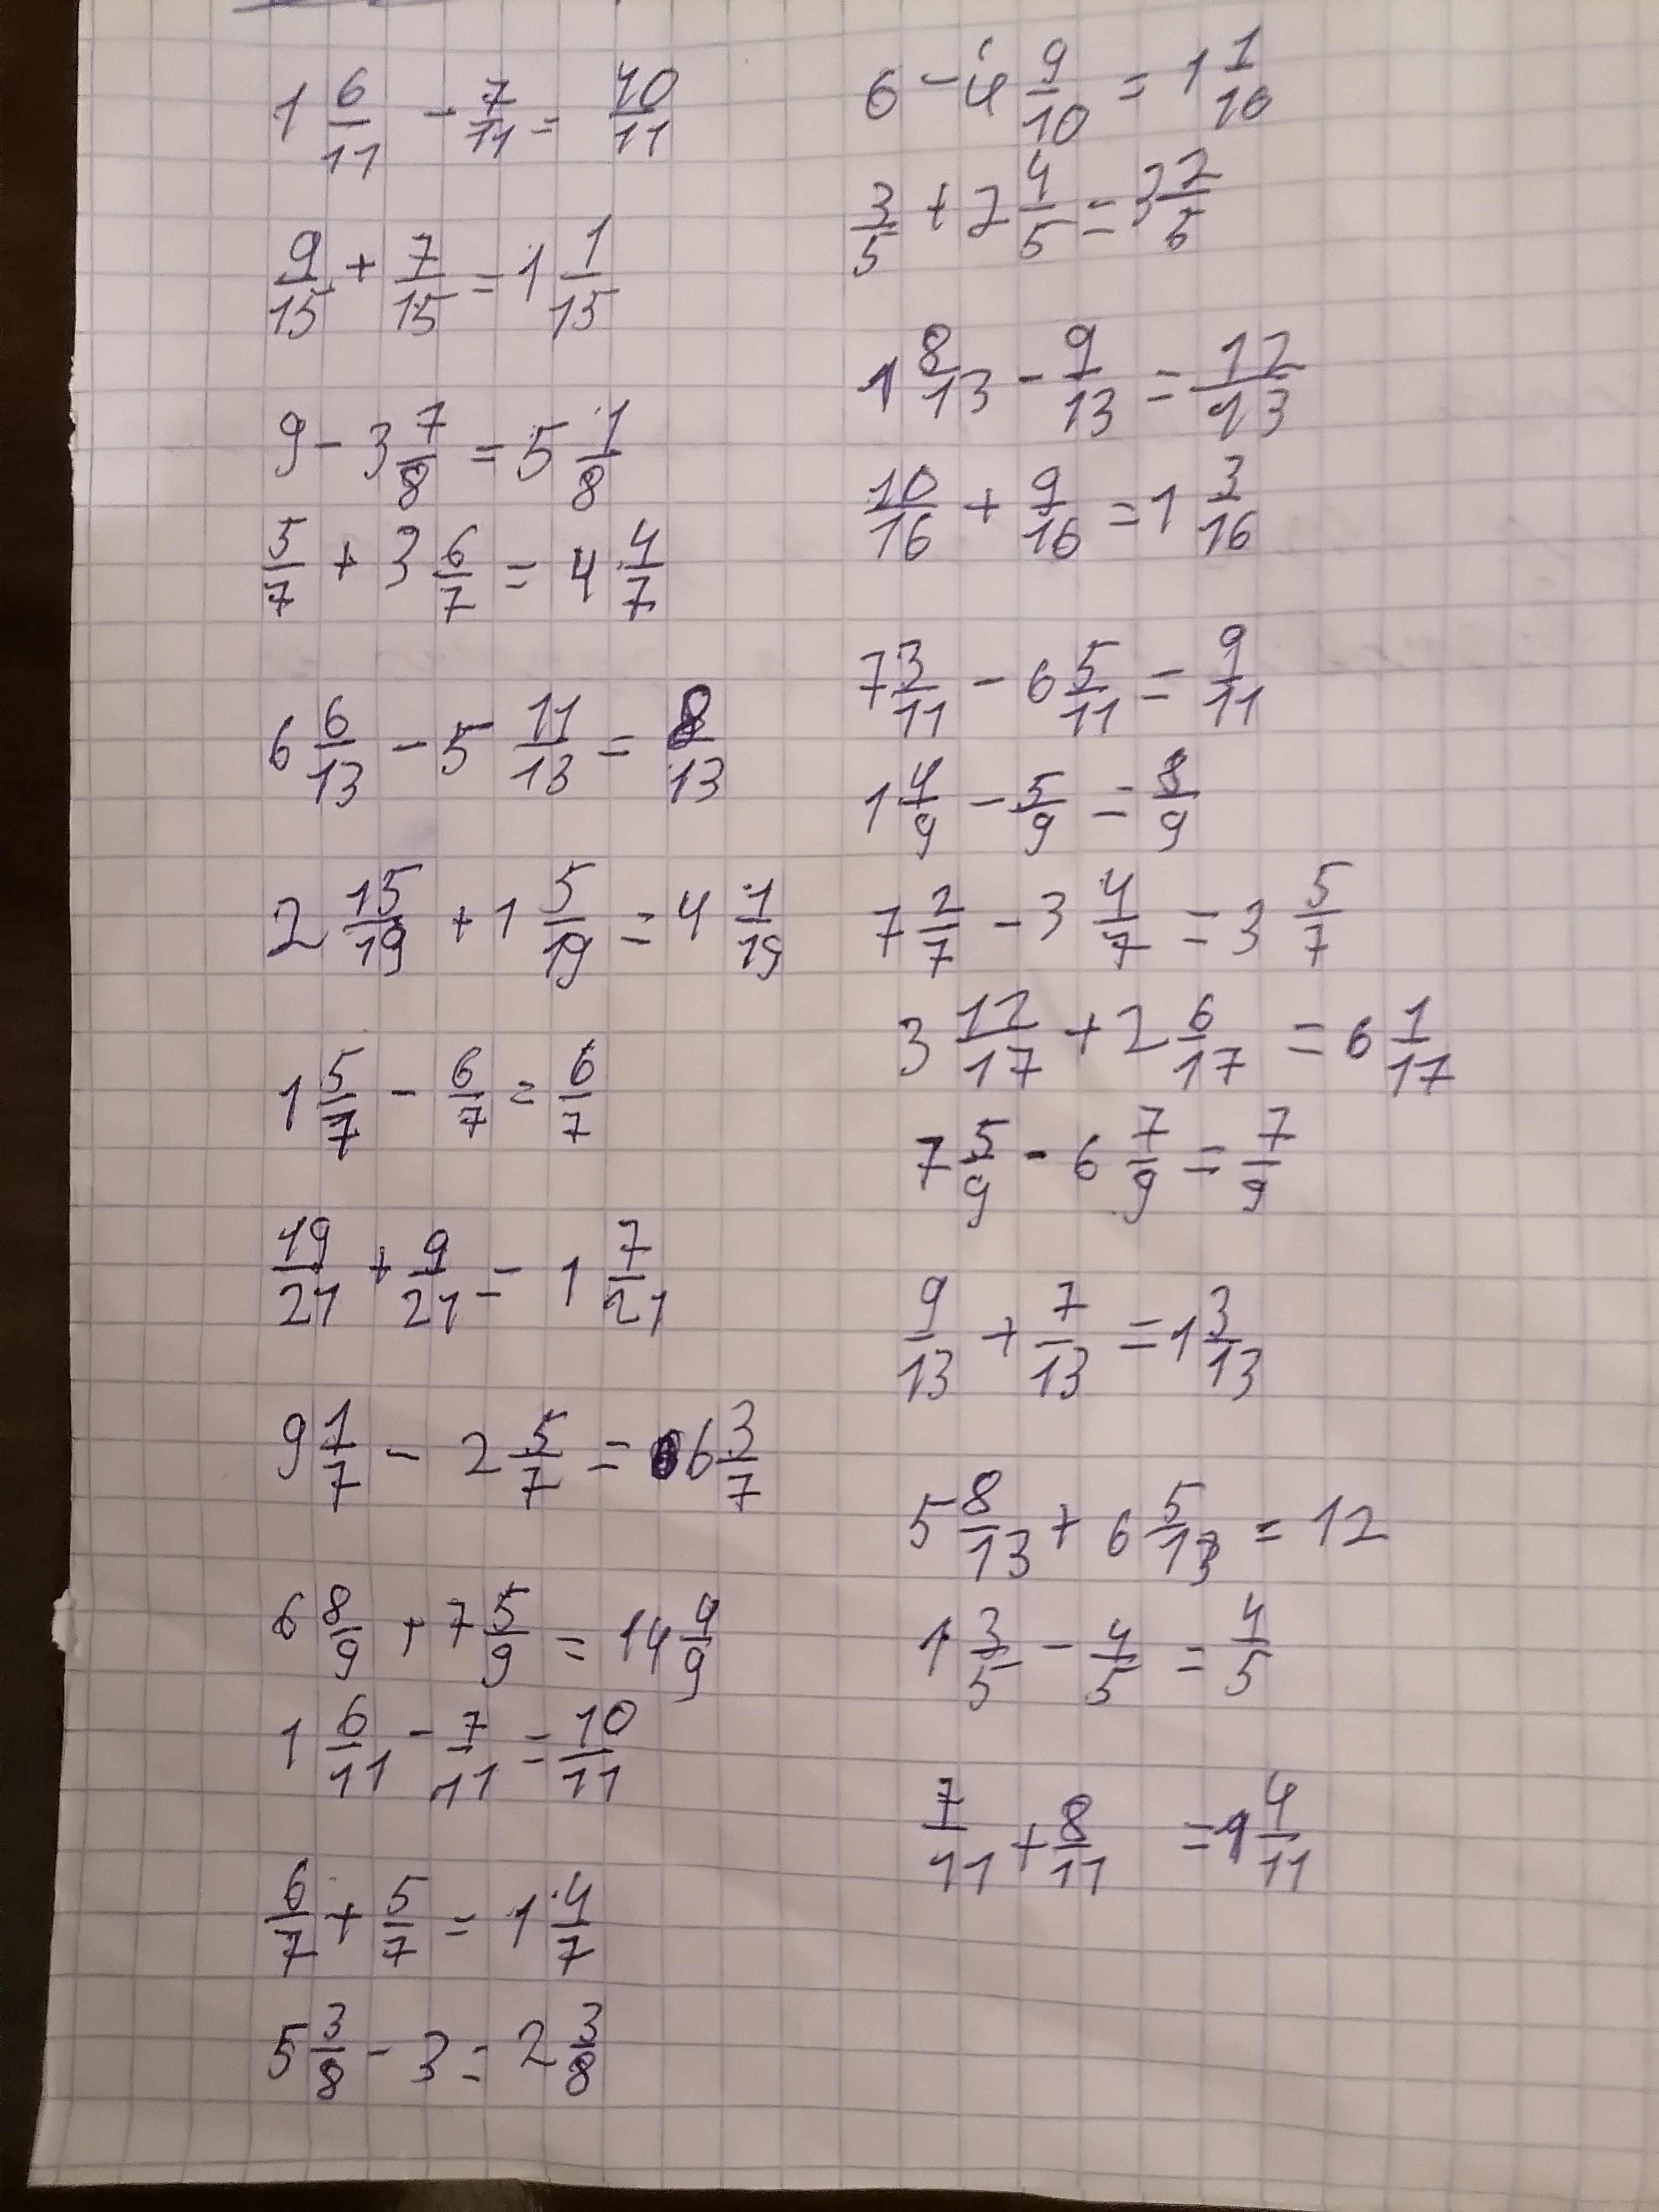 1 6/11 - 7/11 = 10/11
9/15 + 7/15 = 1 1/15
9 - 3 7/8 = 5 1/8
5/7 + 3 6/7 = 4 4/7
6 6/13 - 5 11/13 = 8/13
2 15/19 + 1 5/19 = 4 1/19
1 5/7 - 6/7 = 6/7
19/21 + 9/21 = 1 7/21
9 1/7 - 2 5/7 = 6 3/7
6 8/9 + 7 5/9 = 14 4/9
1 6/11 - 7/11 = 10/11
6/7 + 5/7 = 1 4/7
5 3/8 - 3 = 2 3/8
6 - 4 9/10 = 1 1/10
3/5 + 2 4/5 = 3 2/5
1 8/13 - 9/13 = 12/13
10/16 + 9/16 = 1 3/16
7 3/11 - 6 5/11 = 9/11
1 4/9 - 5/9 = 8/9
7 2/7 - 3 4/7 = 3 5/7
3 12/17 + 2 6/17 = 6 1/17
7 5/9 - 6 7/9 = 7/9
9/13 + 7/13 = 1 3/13
5 8/13 + 6 5/13 = 12
1 3/5 - 4/5 = 4/5
7/11 + 8/11 = 1 4/11